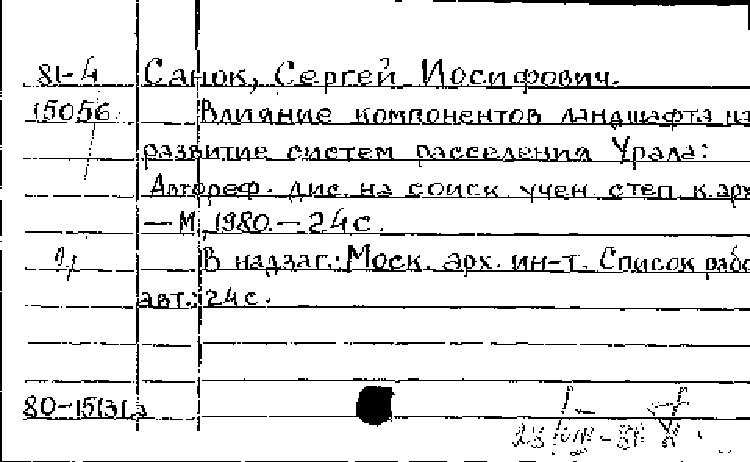 81-4 Санок, Сергей Иосифович.
15056 Влияние компонентов ландшафта на
развитие систем расселения Урала:
Автореф. дис. на соиск. учен. степ. к. арх
— М., 1980. — 24 с.
В надзаг.: Моск. арх. ин-т. Список рабо
авт.: 24 с.
80-15131